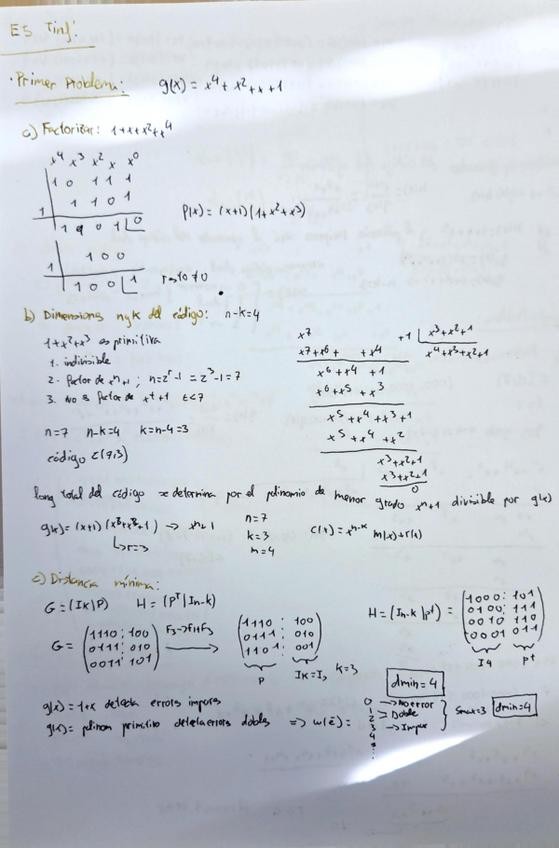 ES Tinf:
· Primer Problema: g(x) = x⁴ + x² + x + 1
a) Factorizar: 1+x+x²+x⁴
x⁴ x³ x² x x⁰
1 0 1 1 1
1 1 1 0 1
1 1 0 1 0
P(x) = (x+1)(1+x²+x³)
1 0 0
1 1 0 0 1 resto ≠ 0
b) Dimensiones n y k del código: n-k=4
1+x²+x³ es primitiva
1. indivisible
2. Factor de xⁿ+1; n=2^r-1 = 2³-1 = 7
3. No es factor de x^t+1 t<7
n=7 n-k=4 k=n-4=3
código C(7,3)
x⁷ +1 | x³+x²+1
x⁷+x⁶+ +x⁴ x⁴+x³+x²+1
x⁶+x⁴ +1
x⁶+x⁵ +x³
x⁵+x⁴+x³+1
x⁵+x⁴ +x²
x³+x²+1
x³+x²+1
0
long total del código se determina por el polinomio de menor grado xⁿ+1 divisible por g(x)
g(x) = (x+1)(x³+x²+1) → xⁿ+1 n=7
↳r=3 k=3 C(x) = x^(n-k) m(x)+r(x)
m=4
c) Distancia mínima:
G = (Ik|P) H = (Pᵀ|In-k)
G = (1110 : 100
0111 : 010
0011 : 101) F3→F1+F3 (1110 : 100
0111 : 010
1101 : 001)
P Ik=I₃ k=3
H = (In-k|Pᵗ) = (1000 : 101
0100 : 111
0010 : 110
0001 : 011)
I4 Pᵗ
dmin = 4
g(x) = 1+x detecta errores impares
g(x) = polinom primitivo detecta errores dobles => w(ē) =
0 → No error
1
2 → Doble
3 → Impar
4
Smax=3 dmin=4